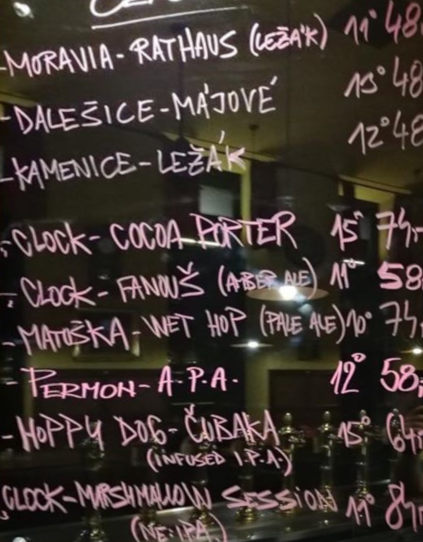 -MORAVIA-RATHAUS (LEŽÁK) 11° 48
-DALEŠICE-MÁJOVÉ 13° 48
-KAMENICE-LEŽÁK 12° 48
-CLOCK-COCOA PORTER 15° 74,-
-CLOCK-FANOUŠ (ABER ALE) 11° 58
-MATUŠKA-WET HOP (PALE ALE) 10° 74,
-PERMON-A.P.A. 12° 58,
-HOPPY DOG-ČUBAKA 15° 64,
(INFUSED I.P.A.)
CLOCK-MARSHMALLOW SESSION 11° 84,
(NE-IPA)